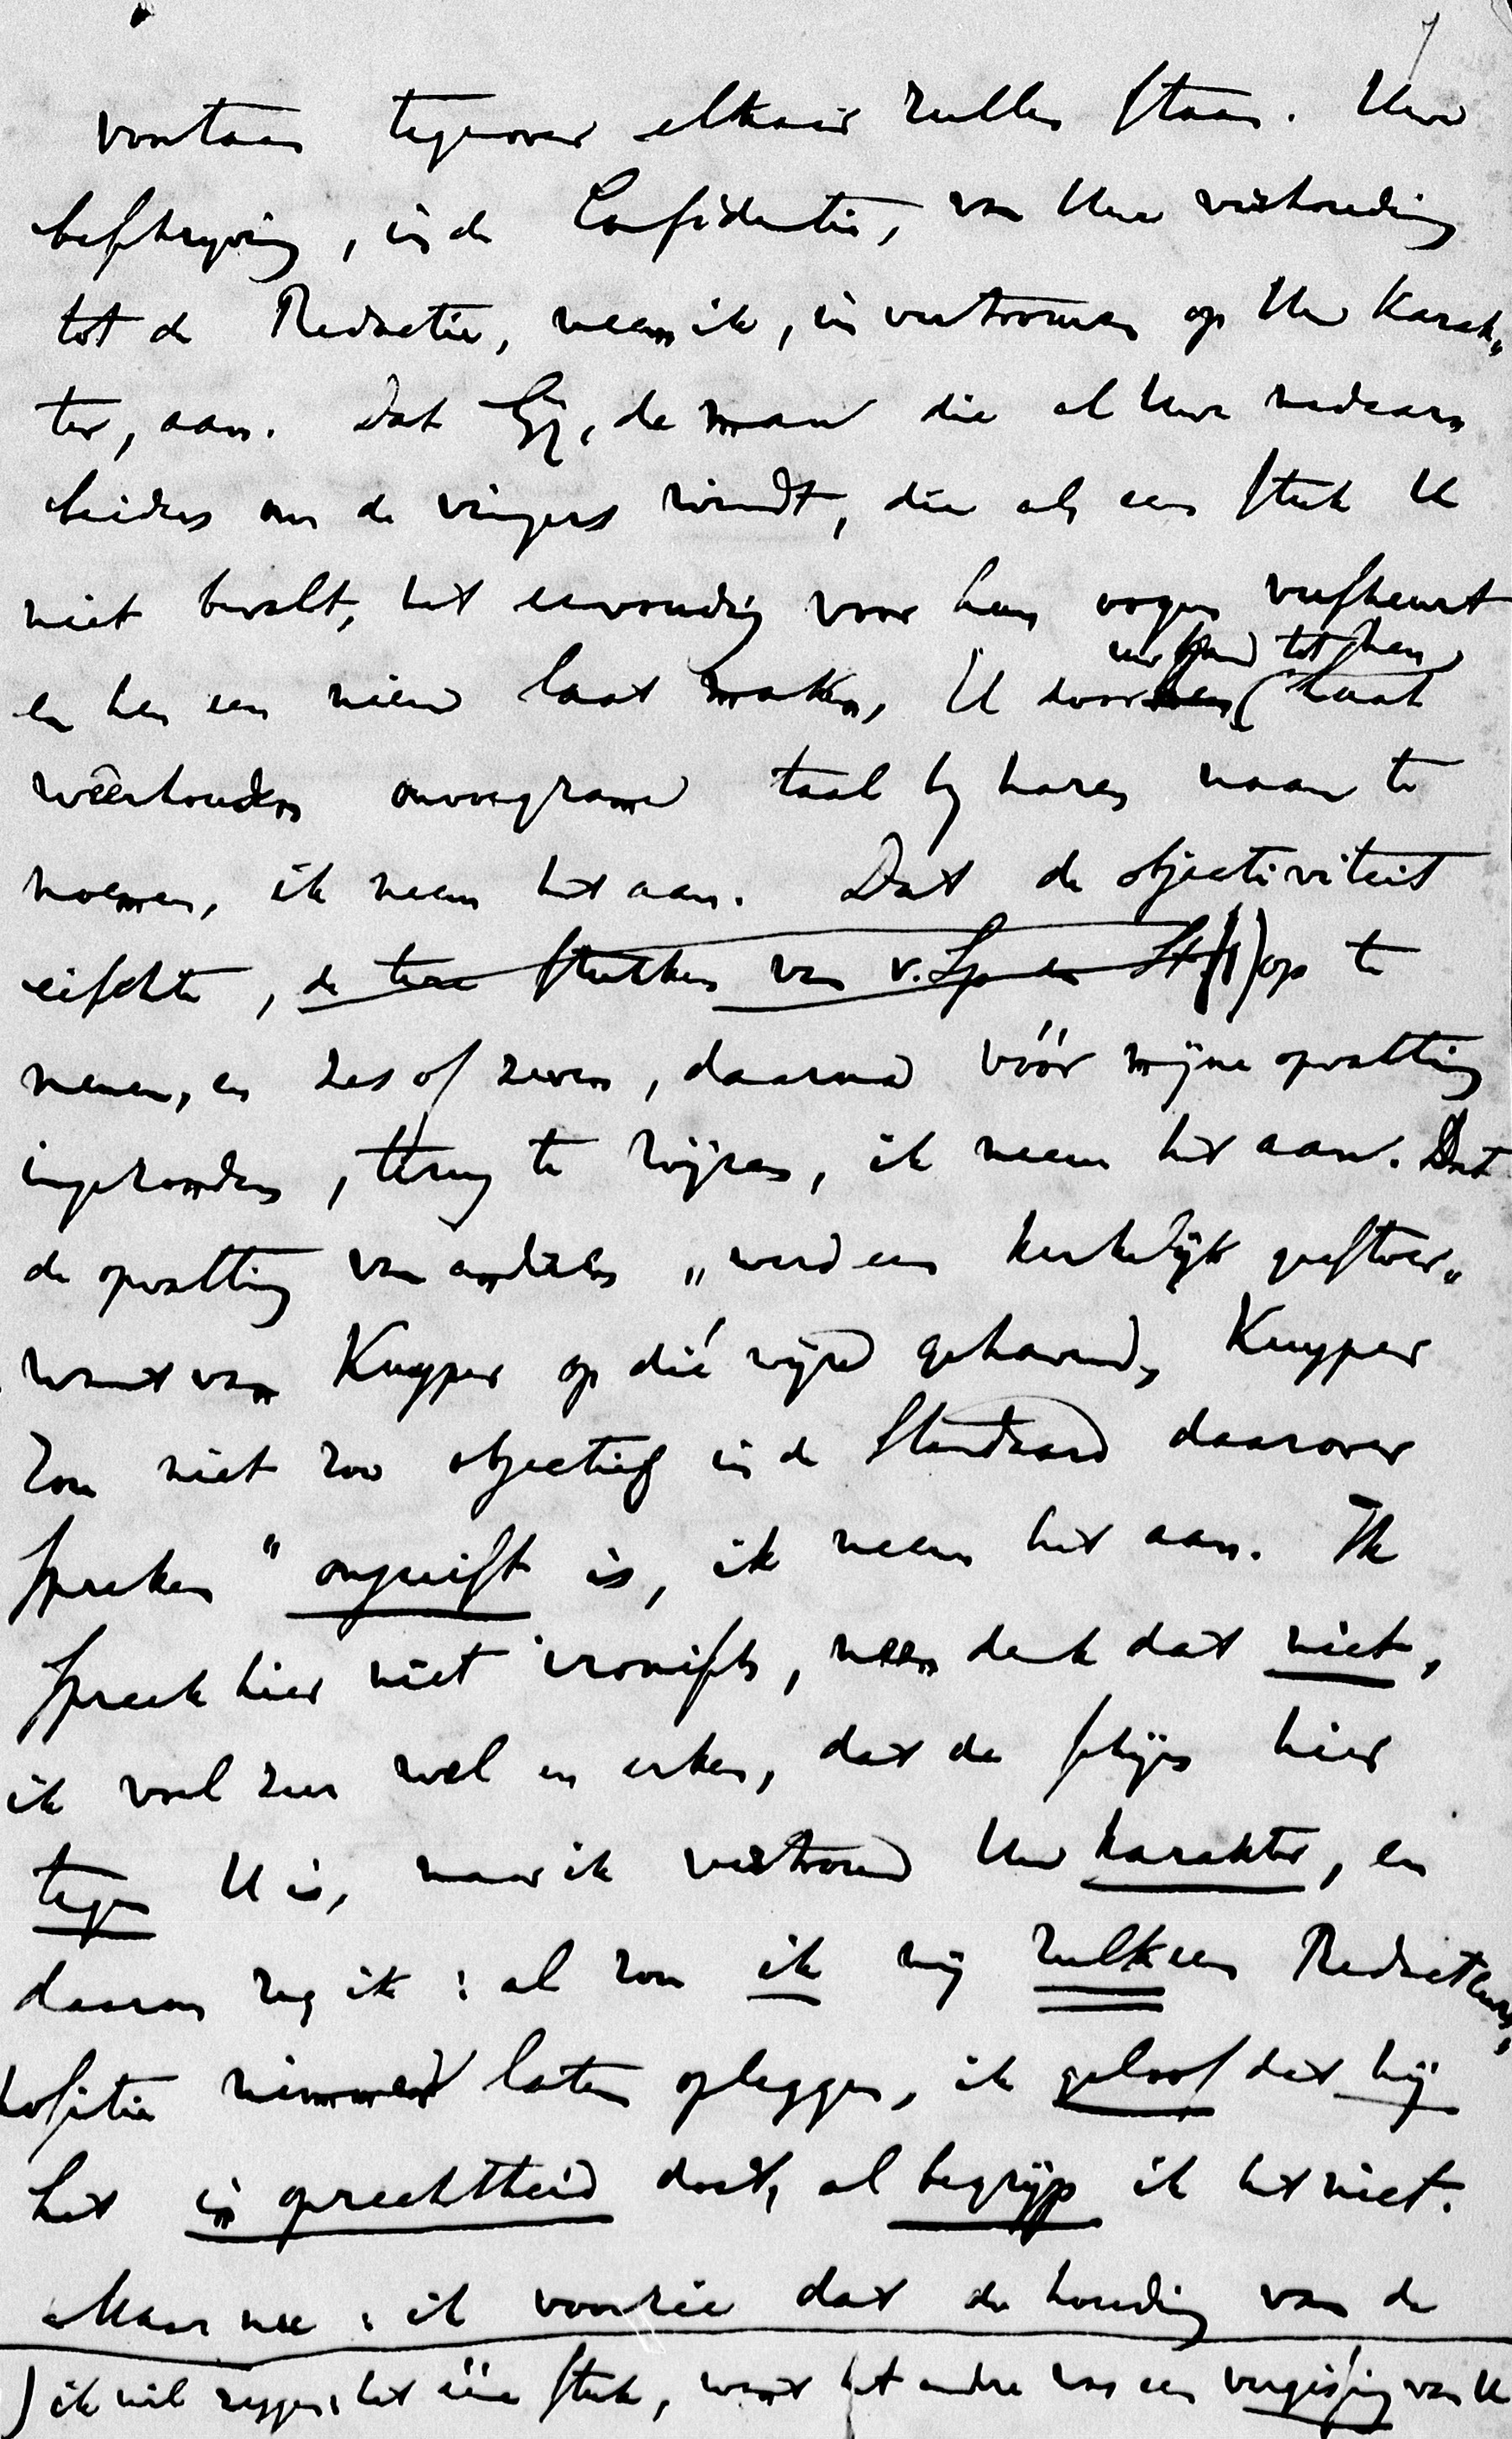 voortaan tegenover elkaar zullen staan. Uwe
beschrijving, in de Confidentie, van Uwe verhouding
tot de Redactie, neem ik, in vertrouwen op Uw Karak„
ter, aan. Dat Gij, de man die al Uwe medear„
beiders om de vingers windt, die als een stuk U
niet bevalt, het eenvoudig voor hun oogen verscheurt
en hen een nieuw laat maken, U door tot hen laat
weêrhouden onvoegzame taal bij haren naam te
noemen, ik neem het aan. Dat de objectiviteit
eischte, de twee stukken van v. Sp en St (1) op te
nemen, en zes of zeven, daarna vóór mijne opvatting
ingezonden, terug te wijzen, ik neem het aan. Dat
de opvatting van anderen „werd een kerkelijk geestver„
want van Kuyper op dié wijze gehavend, Kuyper
zou niet zoo objectief in de Standaard daarover
spreken" onjuist is, ik neem het aan. Ik
spreek hier niet ironisch, neen denk dat niet,
ik voel zeer wel en erken, dat de schijn hier
tegen U is, maar ik vertrouw Uw karakter, en
daarom zeg ik: al zou ik mij zulk een Redacteurs„
positie nimmer laten opleggen, ik geloof dat hij
het in oprechtheid doet, al begrijp ik het niet.
Maar nu: ik voorzie dat de houding van de
) ik wil zeggen: het ééne stuk, want het andre was een vergissing van U